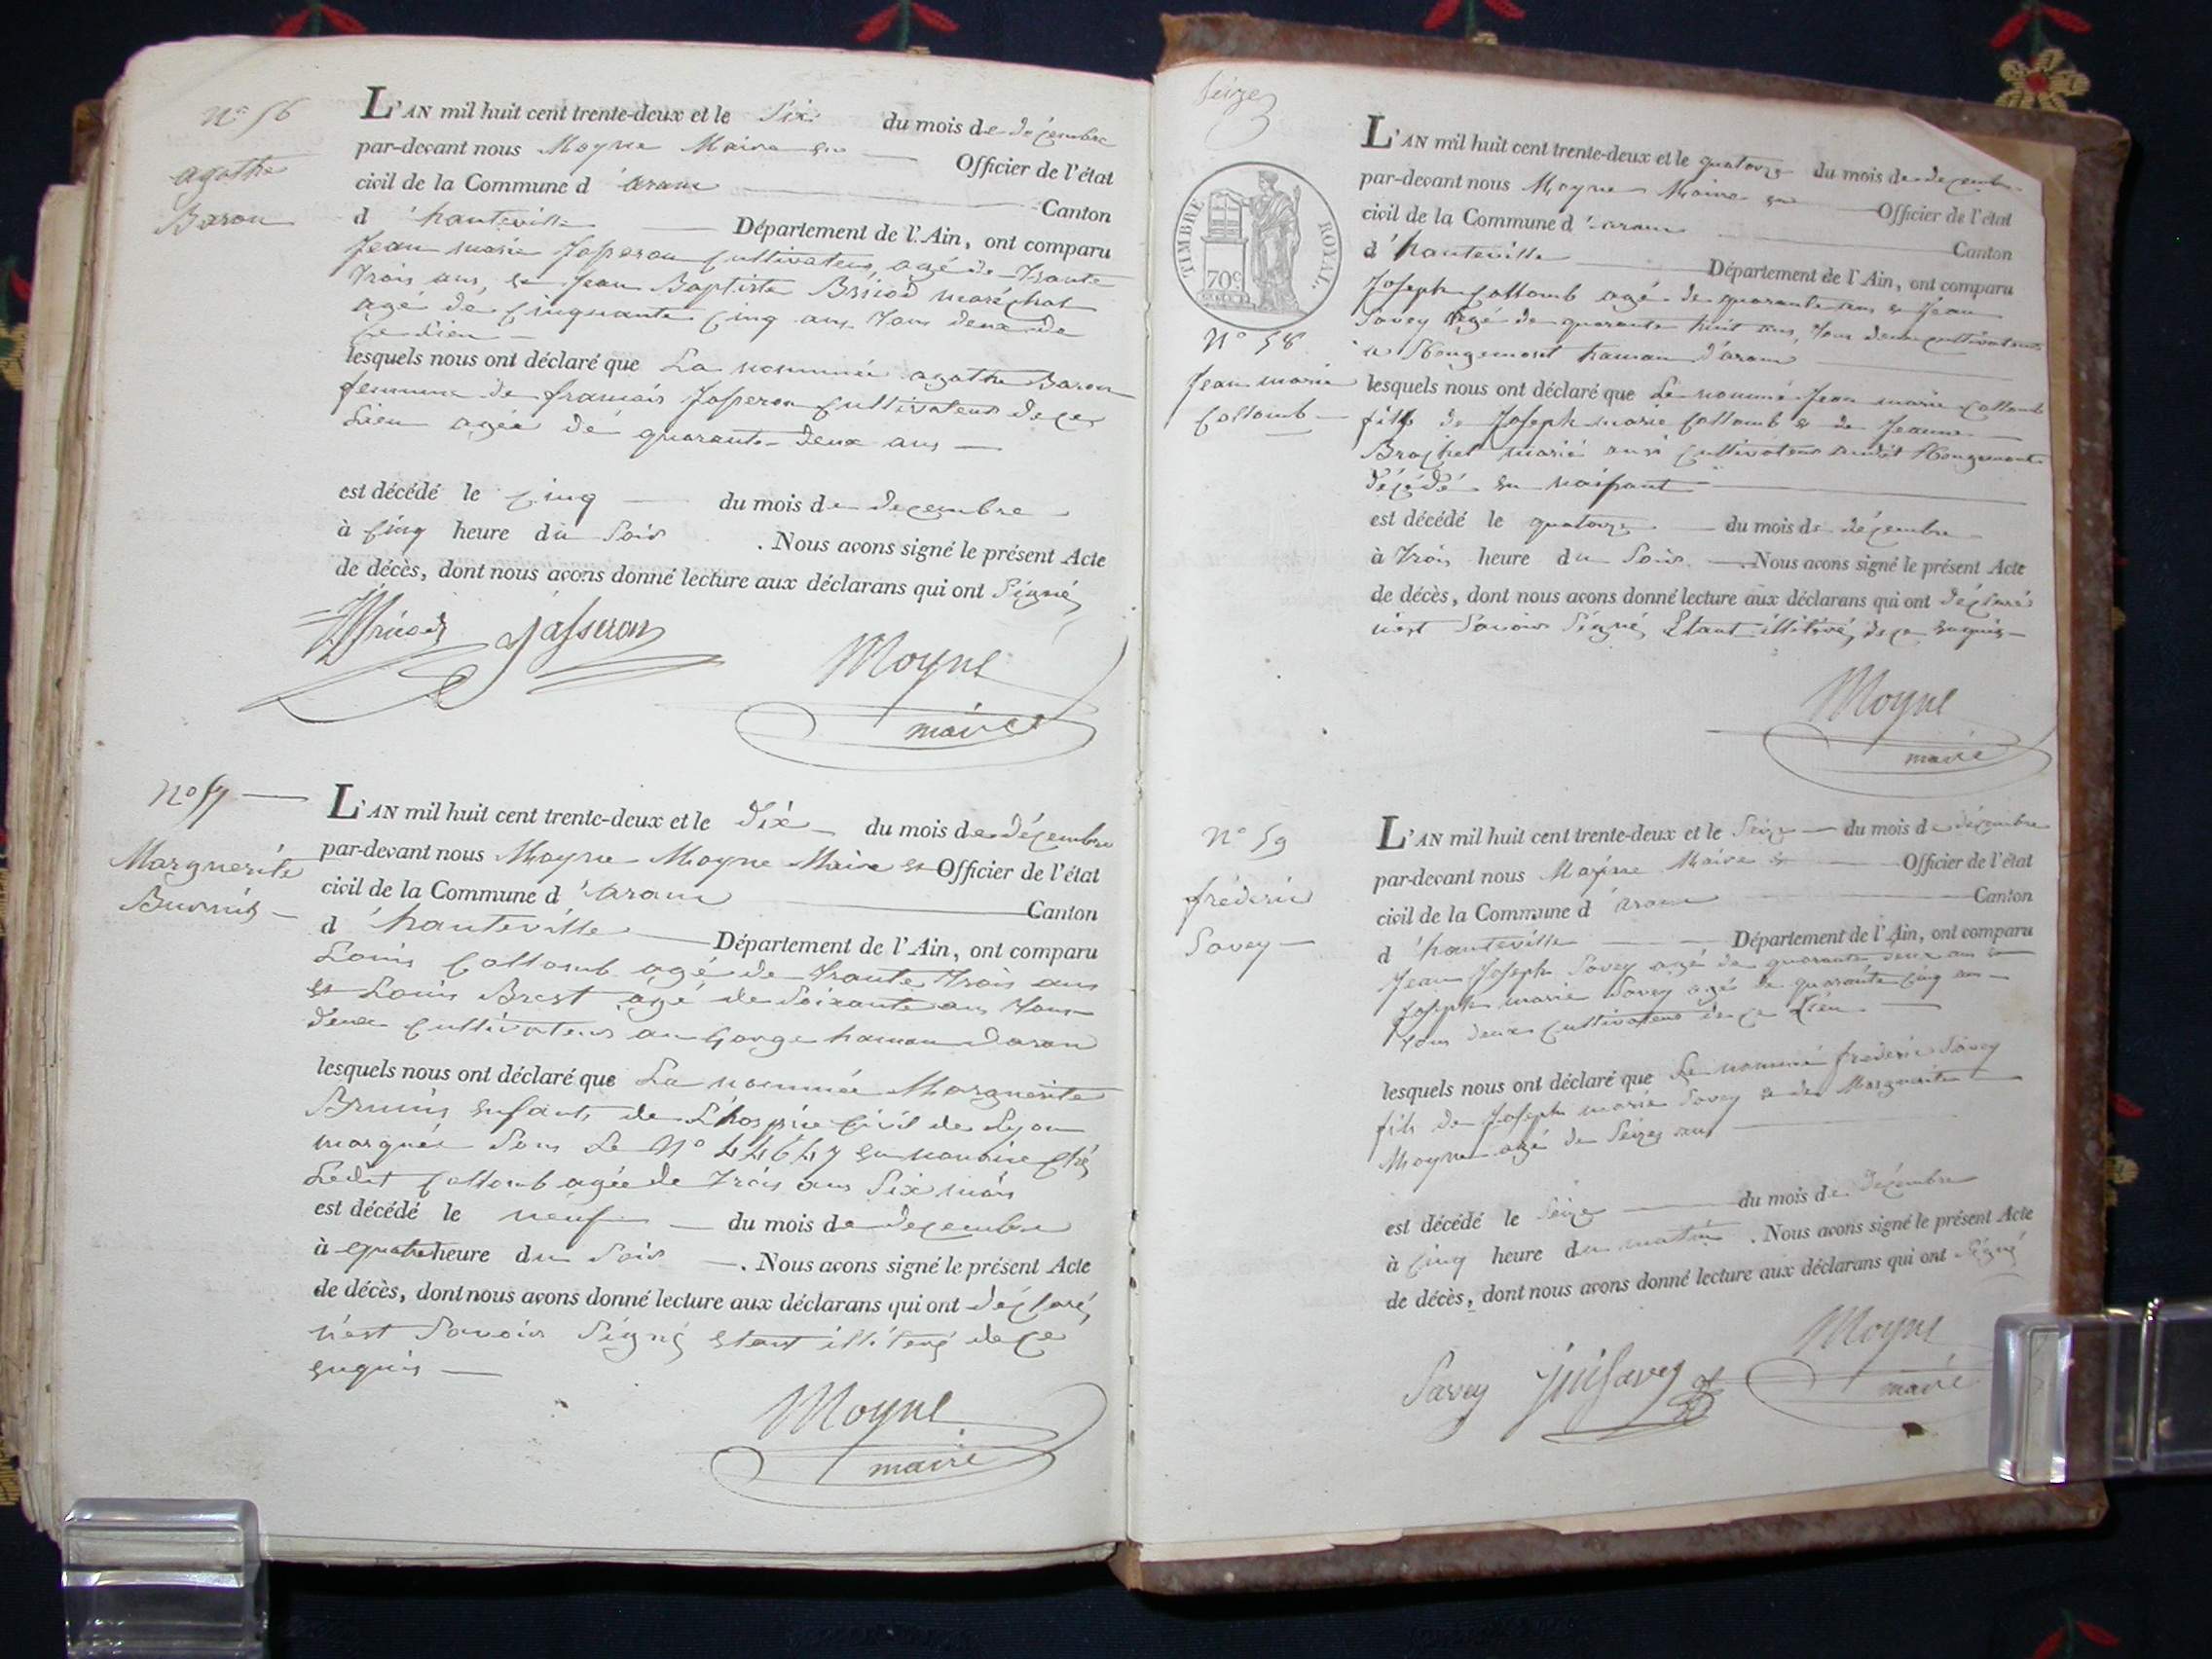 N° 56
agathe
Baron
L'AN mil huit cent trente-deux et le Six du mois de décembre
par-devant nous Moyne Maire et Officier de l'état
civil de la Commune d'aranc Canton
d'hauteville Département de l'Ain, ont comparu
Jean marie Josseron cultivateur, agé de trante
trois ans, et Jean Baptiste Bricod maréchal
agé de cinquante cinq ans tous deux de
ce lieu
lesquels nous ont déclaré que La nommée agathe Baron
femme de francois Josseron cultivateur de ce
Lieu agée de quarante-deux ans
est décédé le cinq du mois de decembre
à cinq heure du Soir. Nous avons signé le présent Acte
de décès, dont nous avons donné lecture aux déclarans qui ont Signé
Bricod Jasseron
Moyne
maire
N° 57
Marguerite
L'AN mil huit cent trente-deux et le dix du mois de décembre
par-devant nous Moyne Moyne Maire et Officier de l'état
civil de la Commune d'aranc Canton
d'hauteville Département de l'Ain, ont comparu
Louis Collomb agé de trante trois ans
et Louis Brest agé de Soixante ans tous
deux cultivateurs au Gorge hamau daranc
lesquels nous ont déclaré que La nommée Marguerite
enfants de L'hospice Civil de Lyon
marquée Sous Le N° 44647 en nourice ché
Ledit Collomb agée de trois ans Six mois
est décédé le neuf du mois de decembre
à quatre heure du Soir. Nous avons signé le présent Acte
de décès, dont nous avons donné lecture aux déclarans qui ont déclaré
n'est Savoir Signé Etant illiteré de ce
enquis
Moyne
maire
Seize
TIMBRE ROYAL
70c
N° 58
Jean marie
Collomb
L'AN mil huit cent trente-deux et le quatorze du mois de decembre
par-devant nous Moyne Maire et Officier de l'état
civil de la Commune d'aranc Canton
d'hauteville Département de l'Ain, ont comparu
Joseph Collomb agé de quarante ans et Jean
Savey agé de quarante huit ans, tous deux cultivateurs
a Rougemont hamau d'aranc
lesquels nous ont déclaré que Le nommé Jean marie Collomb
fils de Joseph marie Collomb et de Jeanne
Brochet mariés cultivateurs audit Rougemont
décédé en naissant
est décédé le quatorze du mois de décembre
à trois heure du Soir. Nous avons signé le présent Acte
de décès, dont nous avons donné lecture aux déclarans qui ont déclaré
n'est Savoir Signé Etant illiteré, de ce enquis
Moyne
maire
N° 59
fréderic
Savey
L'AN mil huit cent trente-deux et le Seize du mois de décembre
par-devant nous Moyne Maire et Officier de l'état
civil de la Commune d'aranc Canton
d'hauteville Département de l'Ain, ont comparu
Jean Joseph Savey agé de quarante deux ans et
Joseph marie Savey agé de quarante cinq ans
tous deux cultivateurs de ce Lieu
lesquels nous ont déclaré que Le nommé fréderic Savey
fils de Joseph marie Savey et de Marguerite
Moyne agé de Seize ans
est décédé le Seize du mois de décembre
à cinq heure du matin. Nous avons signé le présent Acte
de décès, dont nous avons donné lecture aux déclarans qui ont Signé
Savey Savey
Moyne
maire